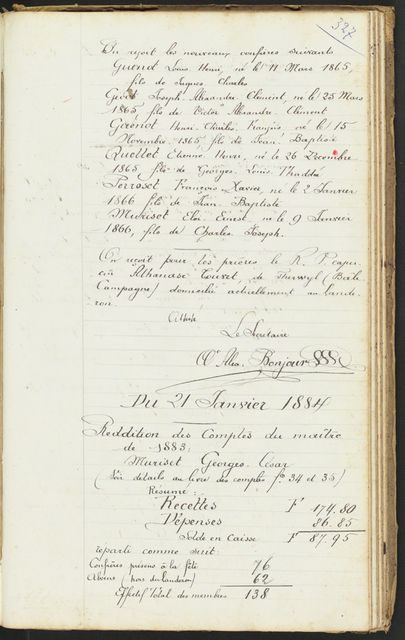 327
On reçoit les nouveaux confrères suivants
Guenot Louis Henri, né le 11 Mars 1865,
fils de Jaques Charles
Girod Joseph Alexandre Clément, né le 25 Mars
1865, fils de Victor Alexandre Clément
Henri Charles François né le 15
Novembre 1865, fils de Jean Baptiste
Quellet Etienne Henri, né le 26 Décembre
1865, fils de Georges Louis Thaddé
Perroset François Xavier, né le 2 Janvier
1866 fils de Jean Baptiste
Muriset Eloi Ernest, né le 9 Janvier
1866, fils de Charles Joseph.
On reçoit pour les prières le R. P. capu-
cin Athanase de (Bâle
Campagne) domicilié actuellement au Lande-
ron.
Atteste
Le Secrétaire
Alex. Bonjour
Du 21 Janvier 1884
Reddition des Comptes du maître
de 1883:
Muriset Georges César
(Voir détails au livre des comptes fo 34 et 35)
Résumé:
Recettes F 174.80
Dépenses 86.85
Solde en Caisse F 87.95
réparti comme suit:
Confrères présens à la fête 76
Absens (hors du landeron) 62
Effectif total des membres 138